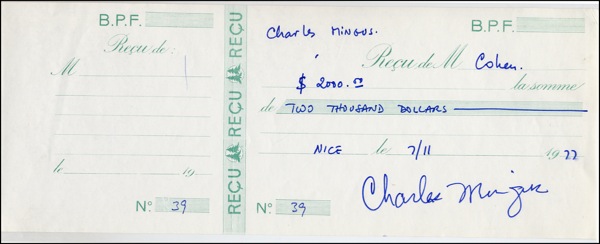 B.P.F.
Reçu de:
M
le 19
Nº 39
REÇU REÇU REÇU
Charles Mingus.
B.P.F.
Reçu de M Cohen.
$ 2000.00
la somme
de TWO THOUSAND DOLLARS
NICE le 7/11 1977
Charles Mingus
Nº 39